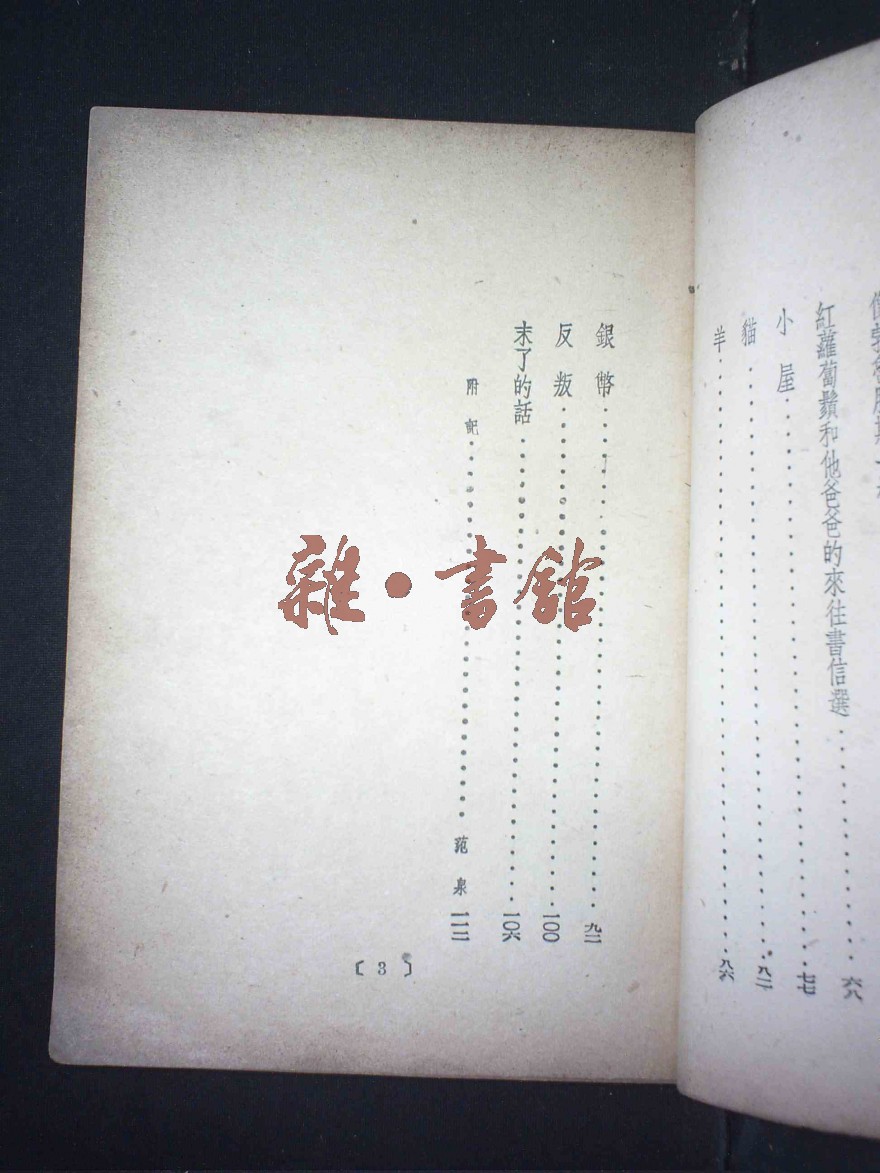 紅蘿蔔鬚和他爸爸的來往書信選……六八
小屋……七七
貓……八二
羊……八六
銀幣……九二
反叛……一〇〇
末了的話……一〇六
附記……范泉 一一二
〔3〕
雜·書館